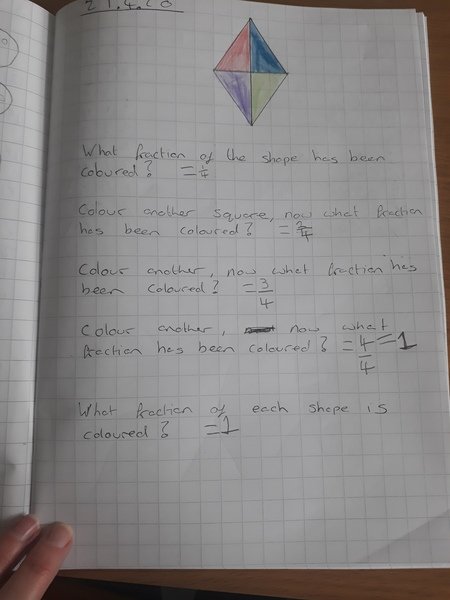 21.4.20
What fraction of the shape has been
coloured? = 1/4
Colour another square, now what fraction
has been coloured? = 2/4
Colour another, now what fraction has
been coloured? = 3/4
Colour another, now what
fraction has been coloured? = 4/4 = 1
What fraction of each shape is
coloured? = 1